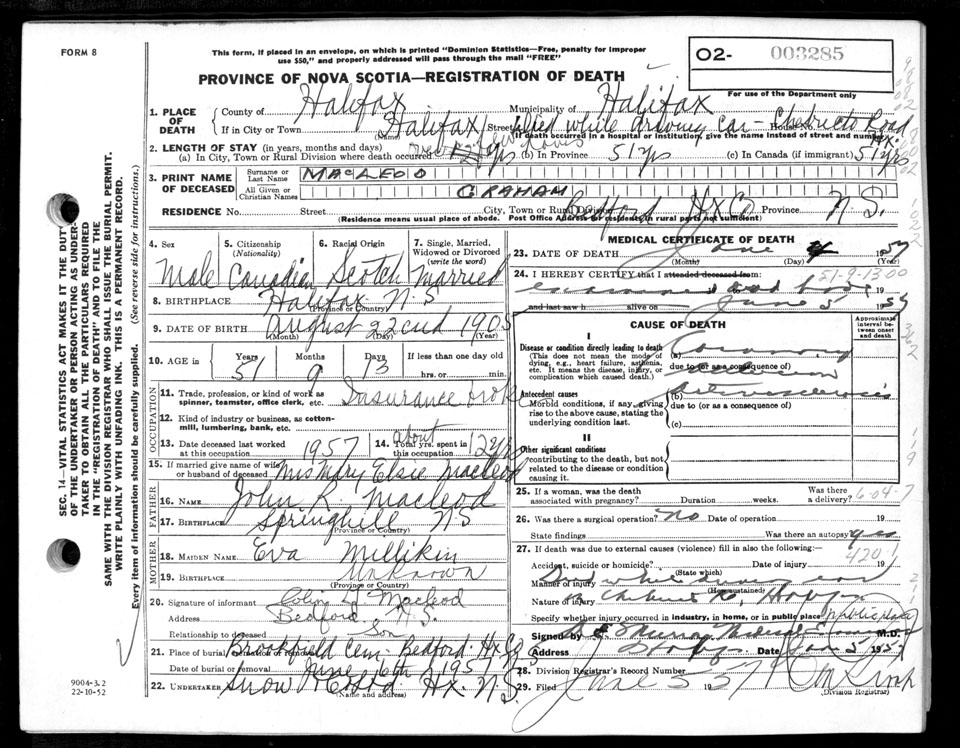 FORM 8
This form, if placed in an envelope, on which is printed "Dominion Statistics—Free, penalty for improper
use $50," and properly addressed will pass through the mail "FREE"
O2- 003285
For use of the Department only
PROVINCE OF NOVA SCOTIA—REGISTRATION OF DEATH
1. PLACE OF DEATH
County of Halifax Municipality of Halifax
If in City or Town Halifax Street died while driving car - Chebucto Road House No. Hx.
(Name) (If death occurred in a hospital or institution, give the name instead of street and number)
2. LENGTH OF STAY (in years, months and days)
(a) In City, Town or Rural Division where death occurred 12 yrs (b) In Province 51 yrs (c) In Canada (if immigrant) 51 yrs
3. PRINT NAME OF DECEASED
Surname or Last Name MACLEOD
All Given or Christian Names GRAHAM
RESIDENCE No. Street City, Town or Rural Division Bedford Hx Co Province N S.
(Residence means usual place of abode. Post Office Address for residents in rural parts not sufficient)
4. Sex Male
5. Citizenship (Nationality) Canadian
6. Racial Origin Scotch
7. Single, Married, Widowed or Divorced (write the word) Married
8. BIRTHPLACE Halifax N S
(Province or Country)
9. DATE OF BIRTH August 22nd 1905
(Month) (Day) (Year)
10. AGE in Years 51 Months 9 Days 13 If less than one day old hrs. or min.
OCCUPATION
11. Trade, profession, or kind of work as spinner, teamster, office clerk, etc. Insurance broker
12. Kind of industry or business, as cotton-mill, lumbering, bank, etc.
13. Date deceased last worked at this occupation 1957
14. Total yrs. spent in this occupation about 12 yrs
15. If married give name of wife or husband of deceased Mrs Mary Elsie Macleod
FATHER
16. NAME John R. Macleod
17. BIRTHPLACE Springhill NS
(Province or Country)
MOTHER
18. MAIDEN NAME Eva Millikin
19. BIRTHPLACE Unknown
(Province or Country)
20. Signature of informant Colin G Macleod
Address Bedford N.S.
Relationship to deceased Son
21. Place of burial, cremation or removal Brookfield Cem - Bedford - Hx Co
Date of burial or removal June 6th 1957
22. UNDERTAKER Snow & Co Ltd Hx. N S.
(Name and address)
MEDICAL CERTIFICATE OF DEATH
23. DATE OF DEATH June 4 1957
(Month) (Day)
24. I HEREBY CERTIFY that I attended deceased from:
examined dead body 19
and last saw h alive on June 5 1957
51-9-1300
CAUSE OF DEATH
Approximate interval between onset and death
I
Disease or condition directly leading to death
(This does not mean the mode of dying, e.g., heart failure, asthenia, etc. It means the disease, injury, or complication which caused death.)
(a) Coronary occlusion
due to (or as a consequence of)
Antecedent causes
Morbid conditions, if any, giving rise to the above cause, stating the underlying condition last.
(b) Arteriosclerosis
due to (or as a consequence of)
(c)
II
Other significant conditions
contributing to the death, but not related to the disease or condition causing it.
25. If a woman, was the death associated with pregnancy? Duration weeks. Was there a delivery? 6-04-7
26. Was there a surgical operation? No Date of operation 19
State findings Was there an autopsy? yes
27. If death was due to external causes (violence) fill in also the following:— 420.1
Accident, suicide or homicide? Date of injury 19
(State which)
Manner of injury while driving car
(How sustained)
Nature of injury
Specify whether injury occurred in industry, in home, or in public place public place
Signed by Murray M.D.
Address Date Jun 5 1957
28. Division Registrar's Record Number
29. Filed June 5 1957
(Division Registrar)
SEC. 14—VITAL STATISTICS ACT MAKES IT THE DUTY
OF THE UNDERTAKER OR PERSON ACTING AS UNDER-
TAKER TO OBTAIN ALL THE PARTICULARS REQUIRED
IN THE "REGISTRATION OF DEATH" AND TO FILE THE
SAME WITH THE DIVISION REGISTRAR WHO SHALL ISSUE THE BURIAL PERMIT.
WRITE PLAINLY WITH UNFADING INK. THIS IS A PERMANENT RECORD.
Every item of information should be carefully supplied. (See reverse side for instructions.)
9004-3.2
22-10-52